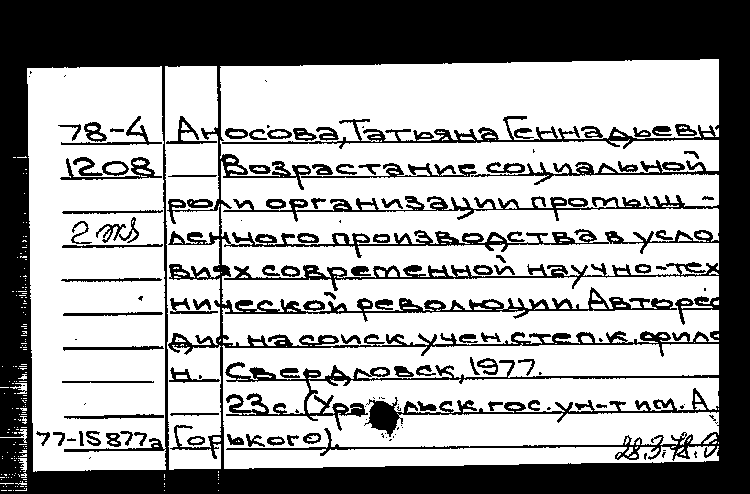 78-4 Аносова, Татьяна Геннадьевн
1208 Возрастание социальной
роли организации промыш-
2 экз ленного производства в усло
виях современной научно-тех
нической революции. Авторес
дис. на соиск. учен. степ. к. филс
н. Свердловск, 1977.
23 с. (Уральск. гос. ун-т им. А.
77-15877а Горького).
28.3.78.